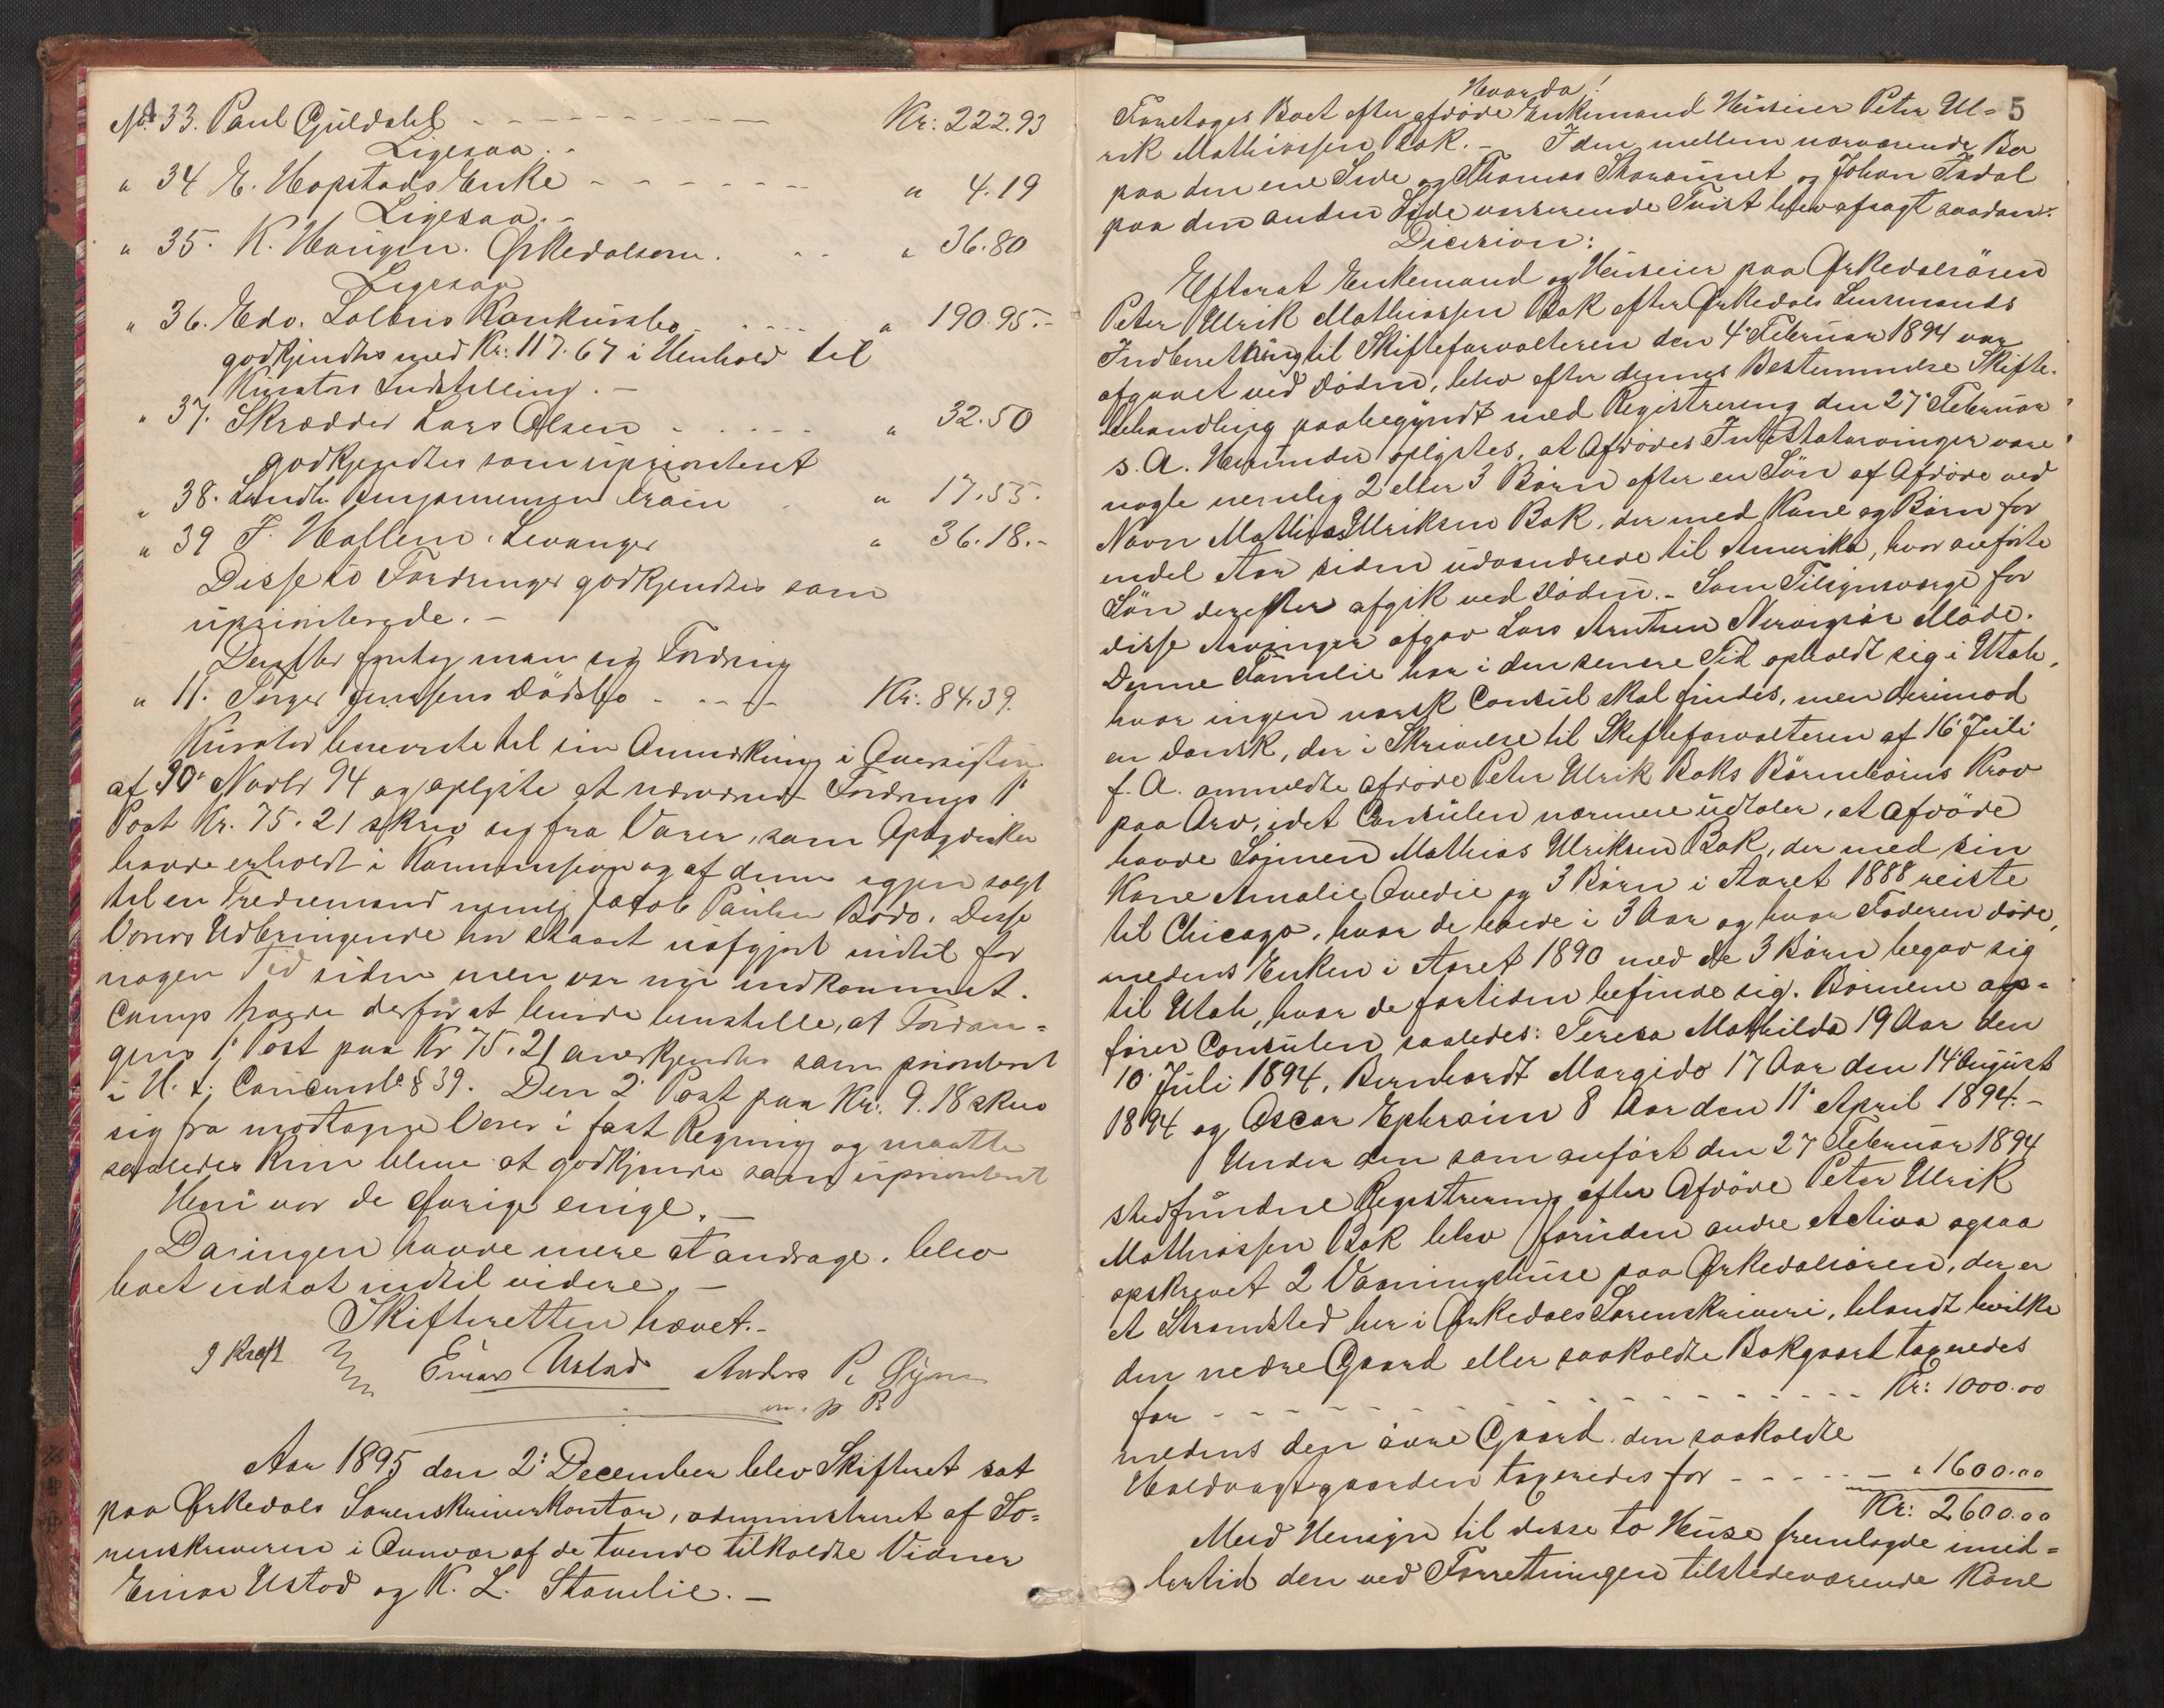 No. 33. Paul Guldahl - - - - - - - - - - Kr: 222.93
Ligesaa. -
" 34 E. Hopstads Enke - - - - - - - " 4.19
Ligesaa. -
" 35. K. Haugen. Ørkedalsøren. - - " 36.80
Ligesaa
" 36. Edv. Konkursbo - - - - - " 190.95.-
godkjendtes med Kr: 117.67 i Henhold til
Kurators Indstilling. -
" 37. Skrædder Lars Olsen - - - - - " 32.50
godkjendtes som uprioriteret
" 38. " 17.55.
" 39 F. Hallem. Levanger " 36.18.-
Disse to Fordringer godkjendtes som
uprioriterede. -
Derefter foretog man sig Fordring
" 11. Jenssens Dødsbo - - - - - Kr: 84.39.
Kurator henviste til sin Anmerkning i Oversigten
af 30' Novbr 94 og oplyste at nævnte Fordrings 1'
Post Kr. 75.21 skrev sig fra Varer, som Opbyderen
havde erholdt i Kommission og af denne igjen solgt
til en Trediemand nemlig Jacob Paulsen Bodø. Disse
Varers Udbringende har staaet uafgjort indtil for
nogen Tid siden men var nu indkommet.
Comp havde derfor at henstille, at Fordrin-
gens 1' Post paa Kr 75.21 anerkjendtes som prioriteret
i H. t. Concursl. § 39. Den 2' Post paa Kr. 9.18 skrev
sig fra modtagne Varer i fast Regning og maatte
saaledes kun blive at godkjende som uprioriteret
Heri var de øvrige enige. -
Da ingen havde mere at andrage, blev
boet udsat indtil videre. -
Skifteretten hævet.-
J Kraft Einar Ustad Anders P. Øyum
m. p. P.
Aar 1895 den 2' December blev Skifteret sat
paa Ørkedals Sorenskriverkontor, administreret af So-
renskriveren i Overvær af de tvende tilkaldte Vidner
Einar Ustad og K. L. Stamlie. -
5
Hvorda!
Foretoges Boet efter afdøde Enkemand Huseier Peter Ul-
rik Mathiassen Bak. - I den mellem nærværende Bo
paa den ene Side og Thomas og Johan Isdal
paa den anden Side værende Tvist blev afsagt saadan:
Decision:
Efterat Enkemand og Huseier paa Ørkedalsøren
Peter Ulrik Mathiassen Bak efter Ørkedals Lensmands
Indberetning til Skifteforvalteren den 4' Februar 1894 var
afgaaet ved Døden, blev efter dennes Bestemmelse Skifte-
behandling paabegyndt med Registrering den 27' Februar
s. A. Herunder oplystes, at Afdødes Intestatarvinger vare
nogle nemlig 2 eller 3 Børn efter en Søn af Afdøde ved
Navn Mathias Ulriksen Bak, der med Kone og Børn for
endel Aar siden udvandrede til Amerika, hvor anførte
Søn derefter afgik ved Døden. - Som Tilsynsværge for
disse Arvinger afgav Lars Arntsen Møde.
Denne Familie har i den senere Tid opholdt sig i Utah,
hvor ingen norsk Consul skal findes, men derimod
en dansk, der i Skrivelse til Skifteforvalteren af 16' Juli
f. A. anmeldte afdøde Peter Ulrik Baks Børnebørns Krav
paa Arv, idet Consulen nærmere udtaler, at Afdøde
havde Sønnen Mathias Ulriksen Bak, der med sin
Kone Amalie Ovedie og 3 Børn i Aaret 1888 reiste
til Chicago, hvor de boede i 3 Aar og hvor Faderen døde,
medens Enken i Aaret 1890 med de 3 Børn begav sig
til Utah, hvor de fortiden befinde sig. Børnene op-
fører Consulen saaledes: Teresa Mathilda 19 Aar den
10' Juli 1894, Bernhardt Margido 17 Aar den 14' August
1894 og Oscar Ephraim 8 Aar den 11' April 1894. -
Under den som anført den 27 Februar 1894
stedfundne Registrering efter Afdøde Peter Ulrik
Mathiassen Bak blev foruden andre Activa ogsaa
opskrevet 2 Vaaningshuse paa Ørkedalsøren, der er
et Strandsted her i Ørkedals Sorenskriveri, blandt hvilke
den nedre Gaard eller saakaldte Bakgaard taxeredes
for - - - - - - - - - - - - - Kr: 1000.00
medens den øvre Gaard den saakaldte
Holdvagtgaarden taxeredes for - - - - - - " 1600.00
Kr: 2600.00
Med Hensyn til disse to Huse fremlagde imid-
lertid den ved Forretningen tilstedeværende Kone